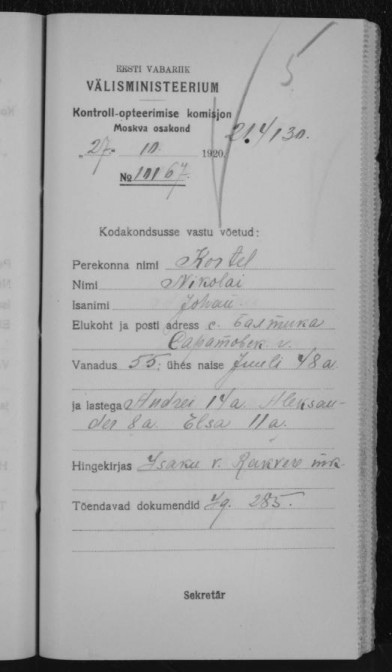 5
EESTI VABARIIK
VÄLISMINISTEERIUM
Kontroll-opteerimise komisjon
Moskva osakond
214/130.
27. 10. 1920
№ 10167.
Kodakondsusse vastu võetud:
Perekonna nimi Kostel
Nimi Nikolai
Isanimi Johan
Elukoht ja posti adress с. Балтика
Саратовск г.
Vanadus 55; ühes naise Juuli 48 a.
ja lastega Andrei 14 a. Aleksan-
der 8 a. Elsa 11 a.
Hingekirjas Isaku v. Rakvere mk.
Tõendavad dokumendid Ig. 285.
Sekretär